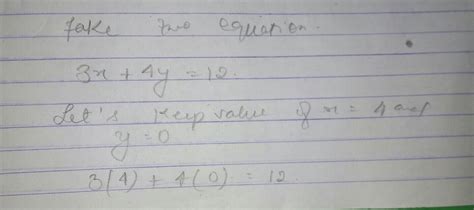 Take two equation.
3x + 4y = 12.
Let's keep value of x = 4 and
y = 0
3(4) + 4(0) = 12.